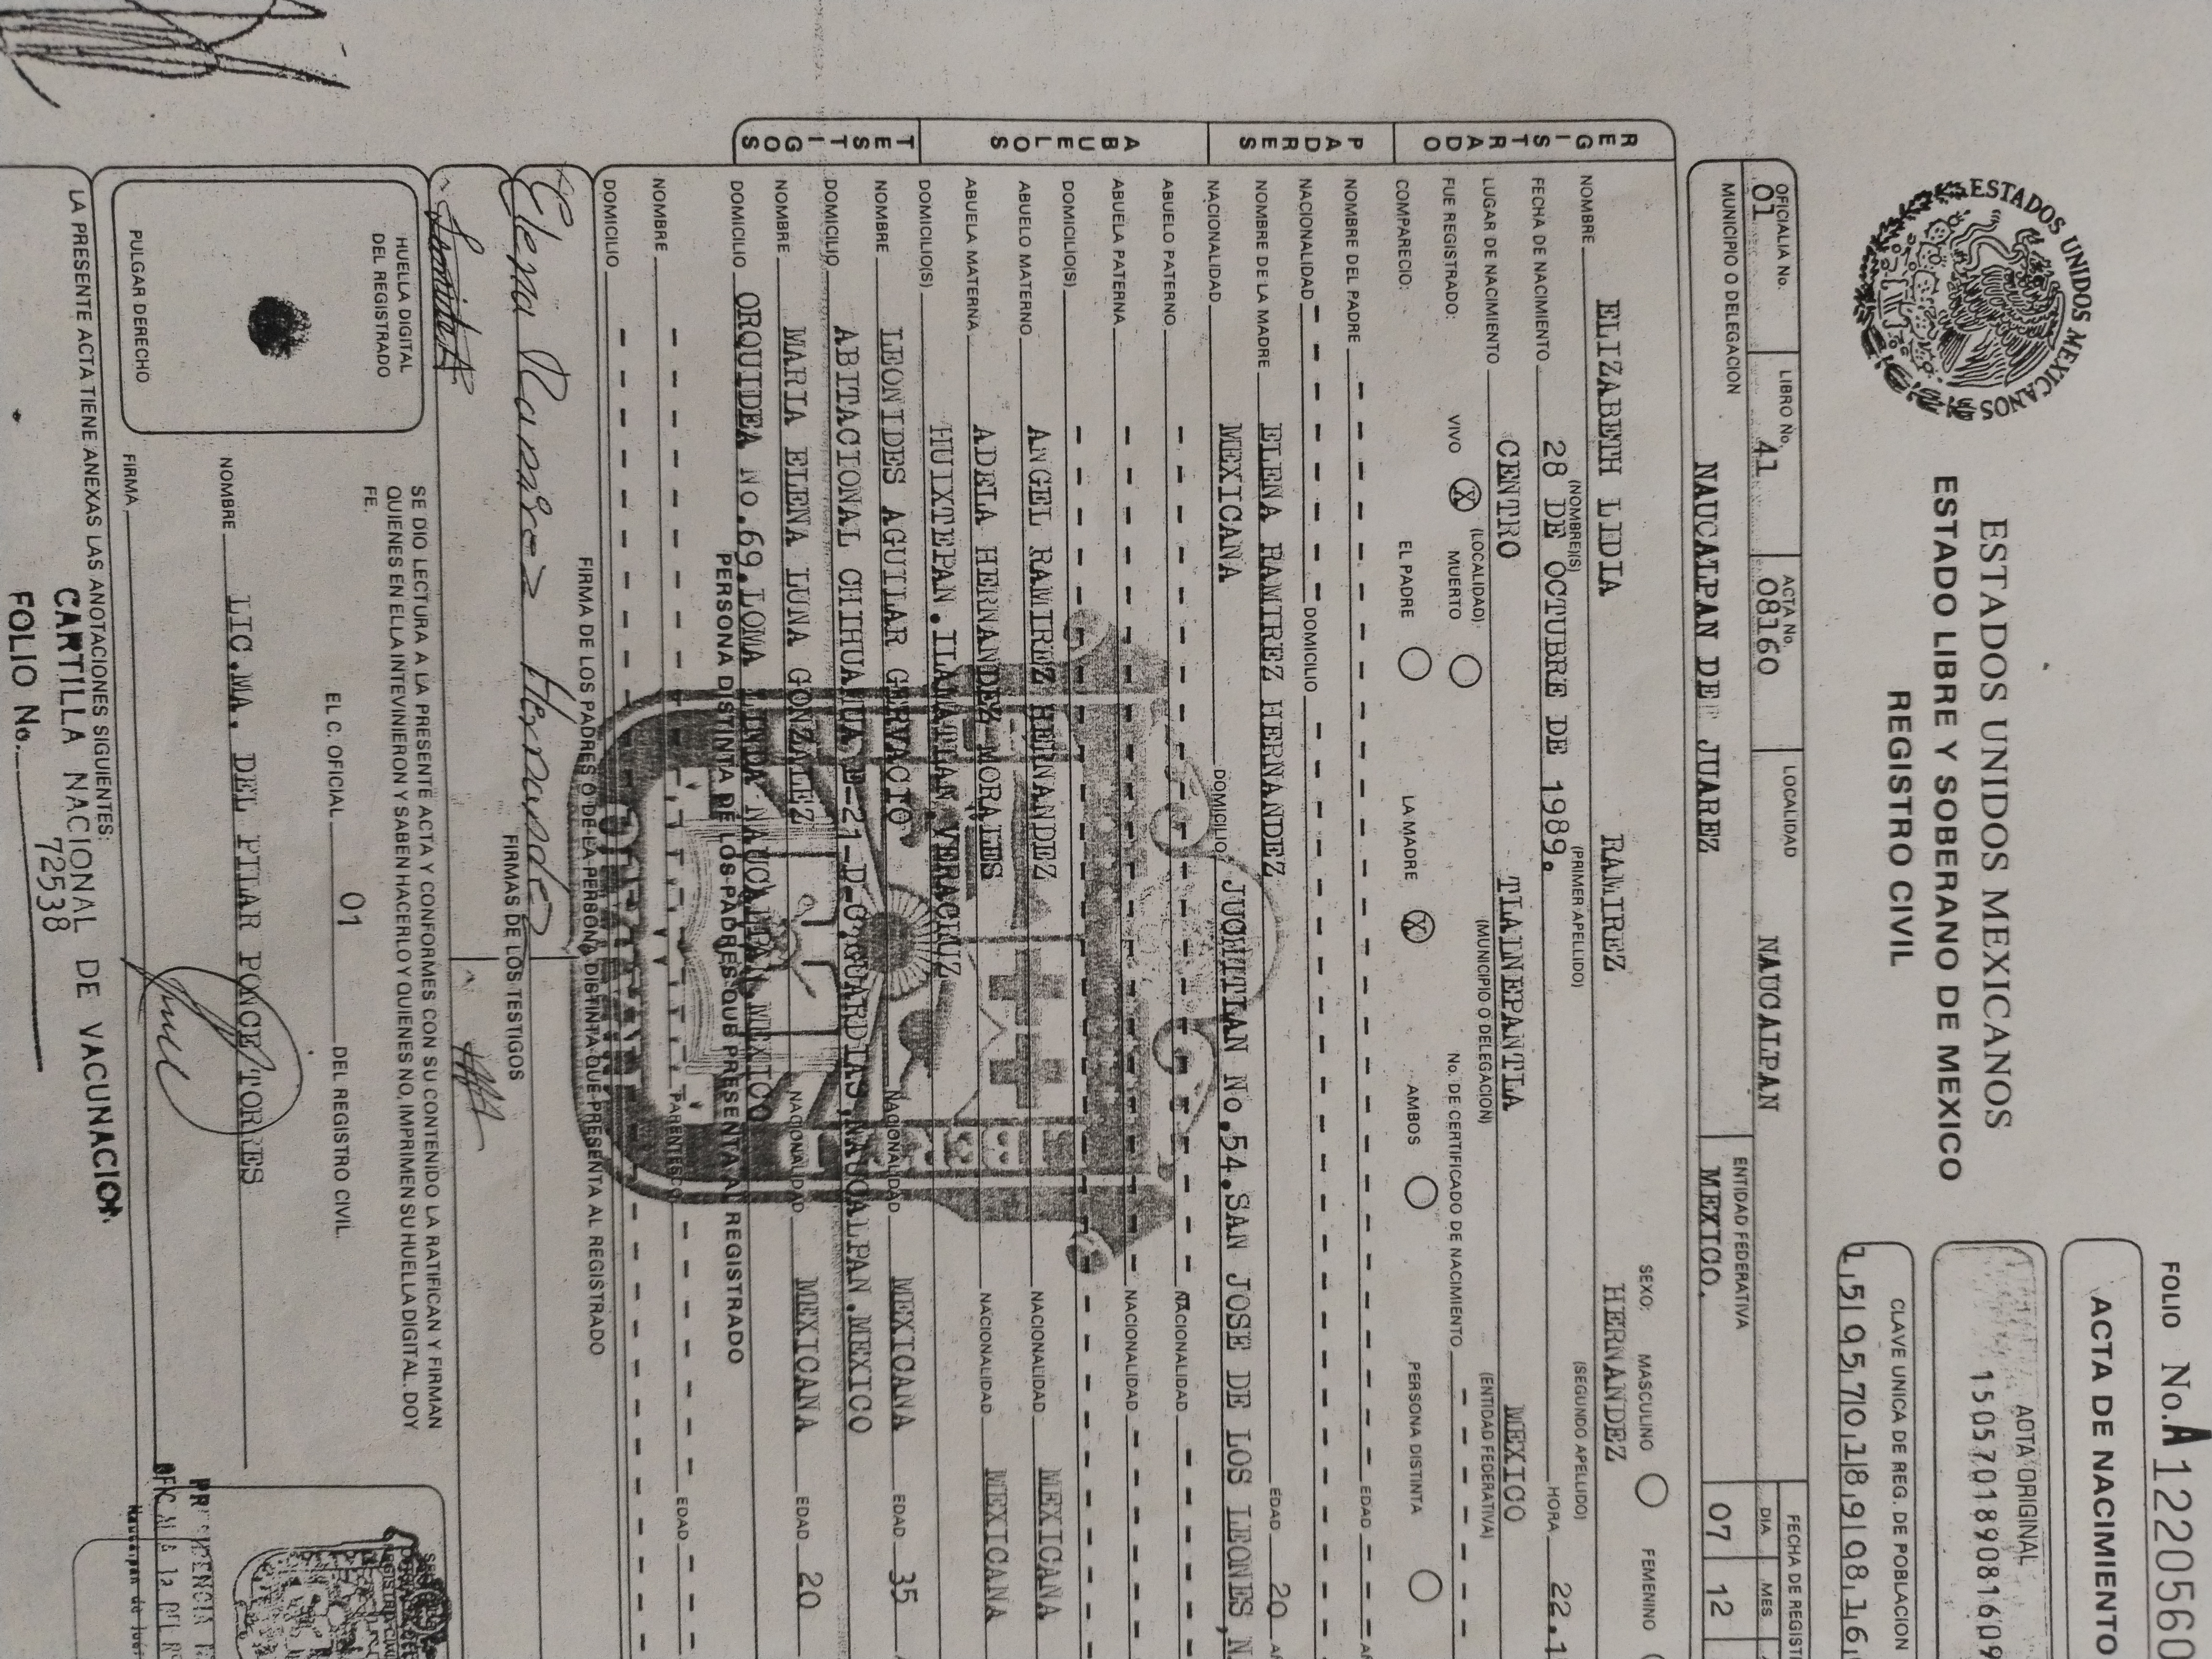 FOLIO No. A 1220560
ESTADOS UNIDOS MEXICANOS
ESTADOS UNIDOS MEXICANOS
ESTADO LIBRE Y SOBERANO DE MEXICO
REGISTRO CIVIL
ACTA DE NACIMIENTO
ACTA ORIGINAL
15057018908160
CLAVE UNICA DE REG. DE POBLACION
1,5|0,5,7|0,1|8,9|0,8,1,6,
OFICIALIA No. LIBRO No. ACTA No. LOCALIDAD ENTIDAD FEDERATIVA FECHA DE REGIST
01 41 08160 NAUCALPAN DIA MES
MUNICIPIO O DELEGACION NAUCALPAN DE JUAREZ MEXICO. 07 12
REGISTRADO
SEXO: MASCULINO FEMENINO
NOMBRE ELIZABETH LIDIA RAMIREZ HERNANDEZ
(NOMBRE(S) (PRIMER APELLIDO) (SEGUNDO APELLIDO)
FECHA DE NACIMIENTO 28 DE OCTUBRE DE 1989. HORA 22.1
LUGAR DE NACIMIENTO CENTRO TLALNEPANTLA MEXICO
(LOCALIDAD) (MUNICIPIO O DELEGACION) (ENTIDAD FEDERATIVA)
FUE REGISTRADO: VIVO X MUERTO No. DE CERTIFICADO DE NACIMIENTO
COMPARECIO: EL PADRE LA MADRE X AMBOS PERSONA DISTINTA
PADRES
NOMBRE DEL PADRE EDAD
NACIONALIDAD DOMICILIO
NOMBRE DE LA MADRE ELENA RAMIREZ HERNANDEZ EDAD 20
NACIONALIDAD MEXICANA DOMICILIO JUCHITLAN No.54.SAN JOSE DE LOS LEONES,N
ABUELOS
ABUELO PATERNO NACIONALIDAD
ABUELA PATERNA NACIONALIDAD
DOMICILIO(S)
ABUELO MATERNO ANGEL RAMIREZ HERNANDEZ NACIONALIDAD MEXICANA
ABUELA MATERNA ADELA HERNANDEZ MORALES NACIONALIDAD MEXICANA
DOMICILIO(S) HUIXTEPAN.ILAMATLAN.VERACRUZ
TESTIGOS
NOMBRE LEONIDES AGUILAR GERVACIO NACIONALIDAD MEXICANA EDAD 35
DOMICILIO ABITACIONAL CHIHUAHUA E-21-D-C.GUARDIAS,NAUCALPAN.MEXICO
NOMBRE MARIA ELENA LUNA GONZALEZ NACIONALIDAD MEXICANA EDAD 20
DOMICILIO ORQUIDEA No.69.LOMA LINDA NAUCALPAN.MEXICO
PERSONA DISTINTA DE LOS PADRES QUE PRESENTA AL REGISTRADO
NOMBRE PARENTESCO EDAD
DOMICILIO
FIRMA DE LOS PADRES O DE LA PERSONA DISTINTA QUE PRESENTA AL REGISTRADO
Elena Ramirez Hernandez
FIRMAS DE LOS TESTIGOS
SE DIO LECTURA A LA PRESENTE ACTA Y CONFORMES CON SU CONTENIDO LA RATIFICAN Y FIRMAN
QUIENES EN ELLA INTEVINIERON Y SABEN HACERLO Y QUIENES NO, IMPRIMEN SU HUELLA DIGITAL. DOY
FE.
HUELLA DIGITAL
DEL REGISTRADO
PULGAR DERECHO
EL C. OFICIAL 01 DEL REGISTRO CIVIL.
NOMBRE LIC.MA. DEL PILAR PONCE TORRES
FIRMA
LA PRESENTE ACTA TIENE ANEXAS LAS ANOTACIONES SIGUIENTES:
CARTILLA NACIONAL DE VACUNACION
FOLIO No. 72538